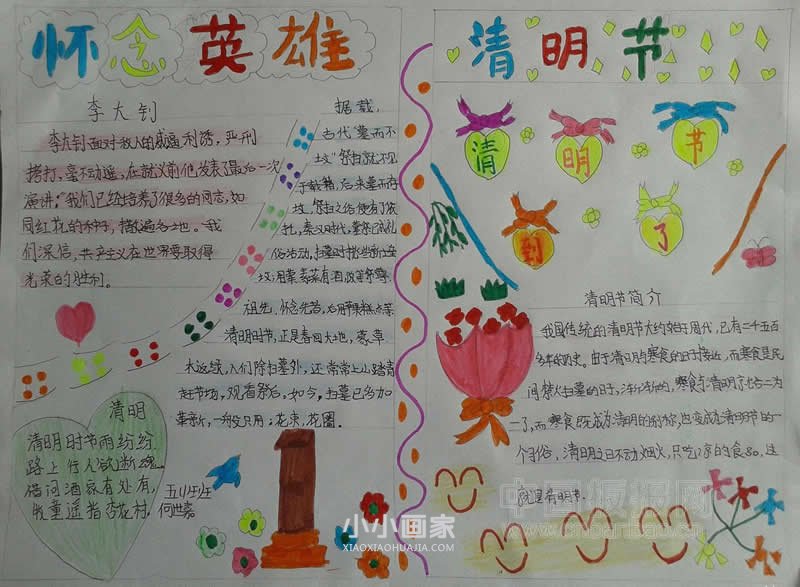 怀念英雄
李大钊
李大钊面对敌人的威逼利诱，严刑
拷打，毫不动遥，在就义前他发表了最后一次
演讲："我们已经培养了很多的同志，如
同红花的种子，撒遍各地。我
们深信，共产主义在世界要取得
光荣的胜利。
据载，
古代"墓而不
坟"祭扫就不见
于载籍，后来墓而
坟，祭扫之俗便有了依
托，秦汉时代，墓祭已成礼
俗活动，
祖先，怀念先音，
清明时节，正是春回大地，
人们除扫墓外，还常常上山踏青
如今，扫墓已多加
花束，花圈。
清明
清明时节雨纷纷
路上行人欲断魂
借问酒家有处有，
牧童遥指杏花村，
何世嘉
小小画家
XIAOXIAOHUAJIA.COM
清明节
清明节
到了
清明节简介
我国传统的清明节大约始于周代，已有二千五百
多年的历史。由于清明与寒食的日子接近，而寒食是民
间禁火扫墓的日子，渐渐的，寒食与清明了合二为
一了，而寒食既成为清明的别称，也变成清明节的一
个习俗，清明之日不动烟火，只吃凉的食品，这
就是清明节。
中国板报网